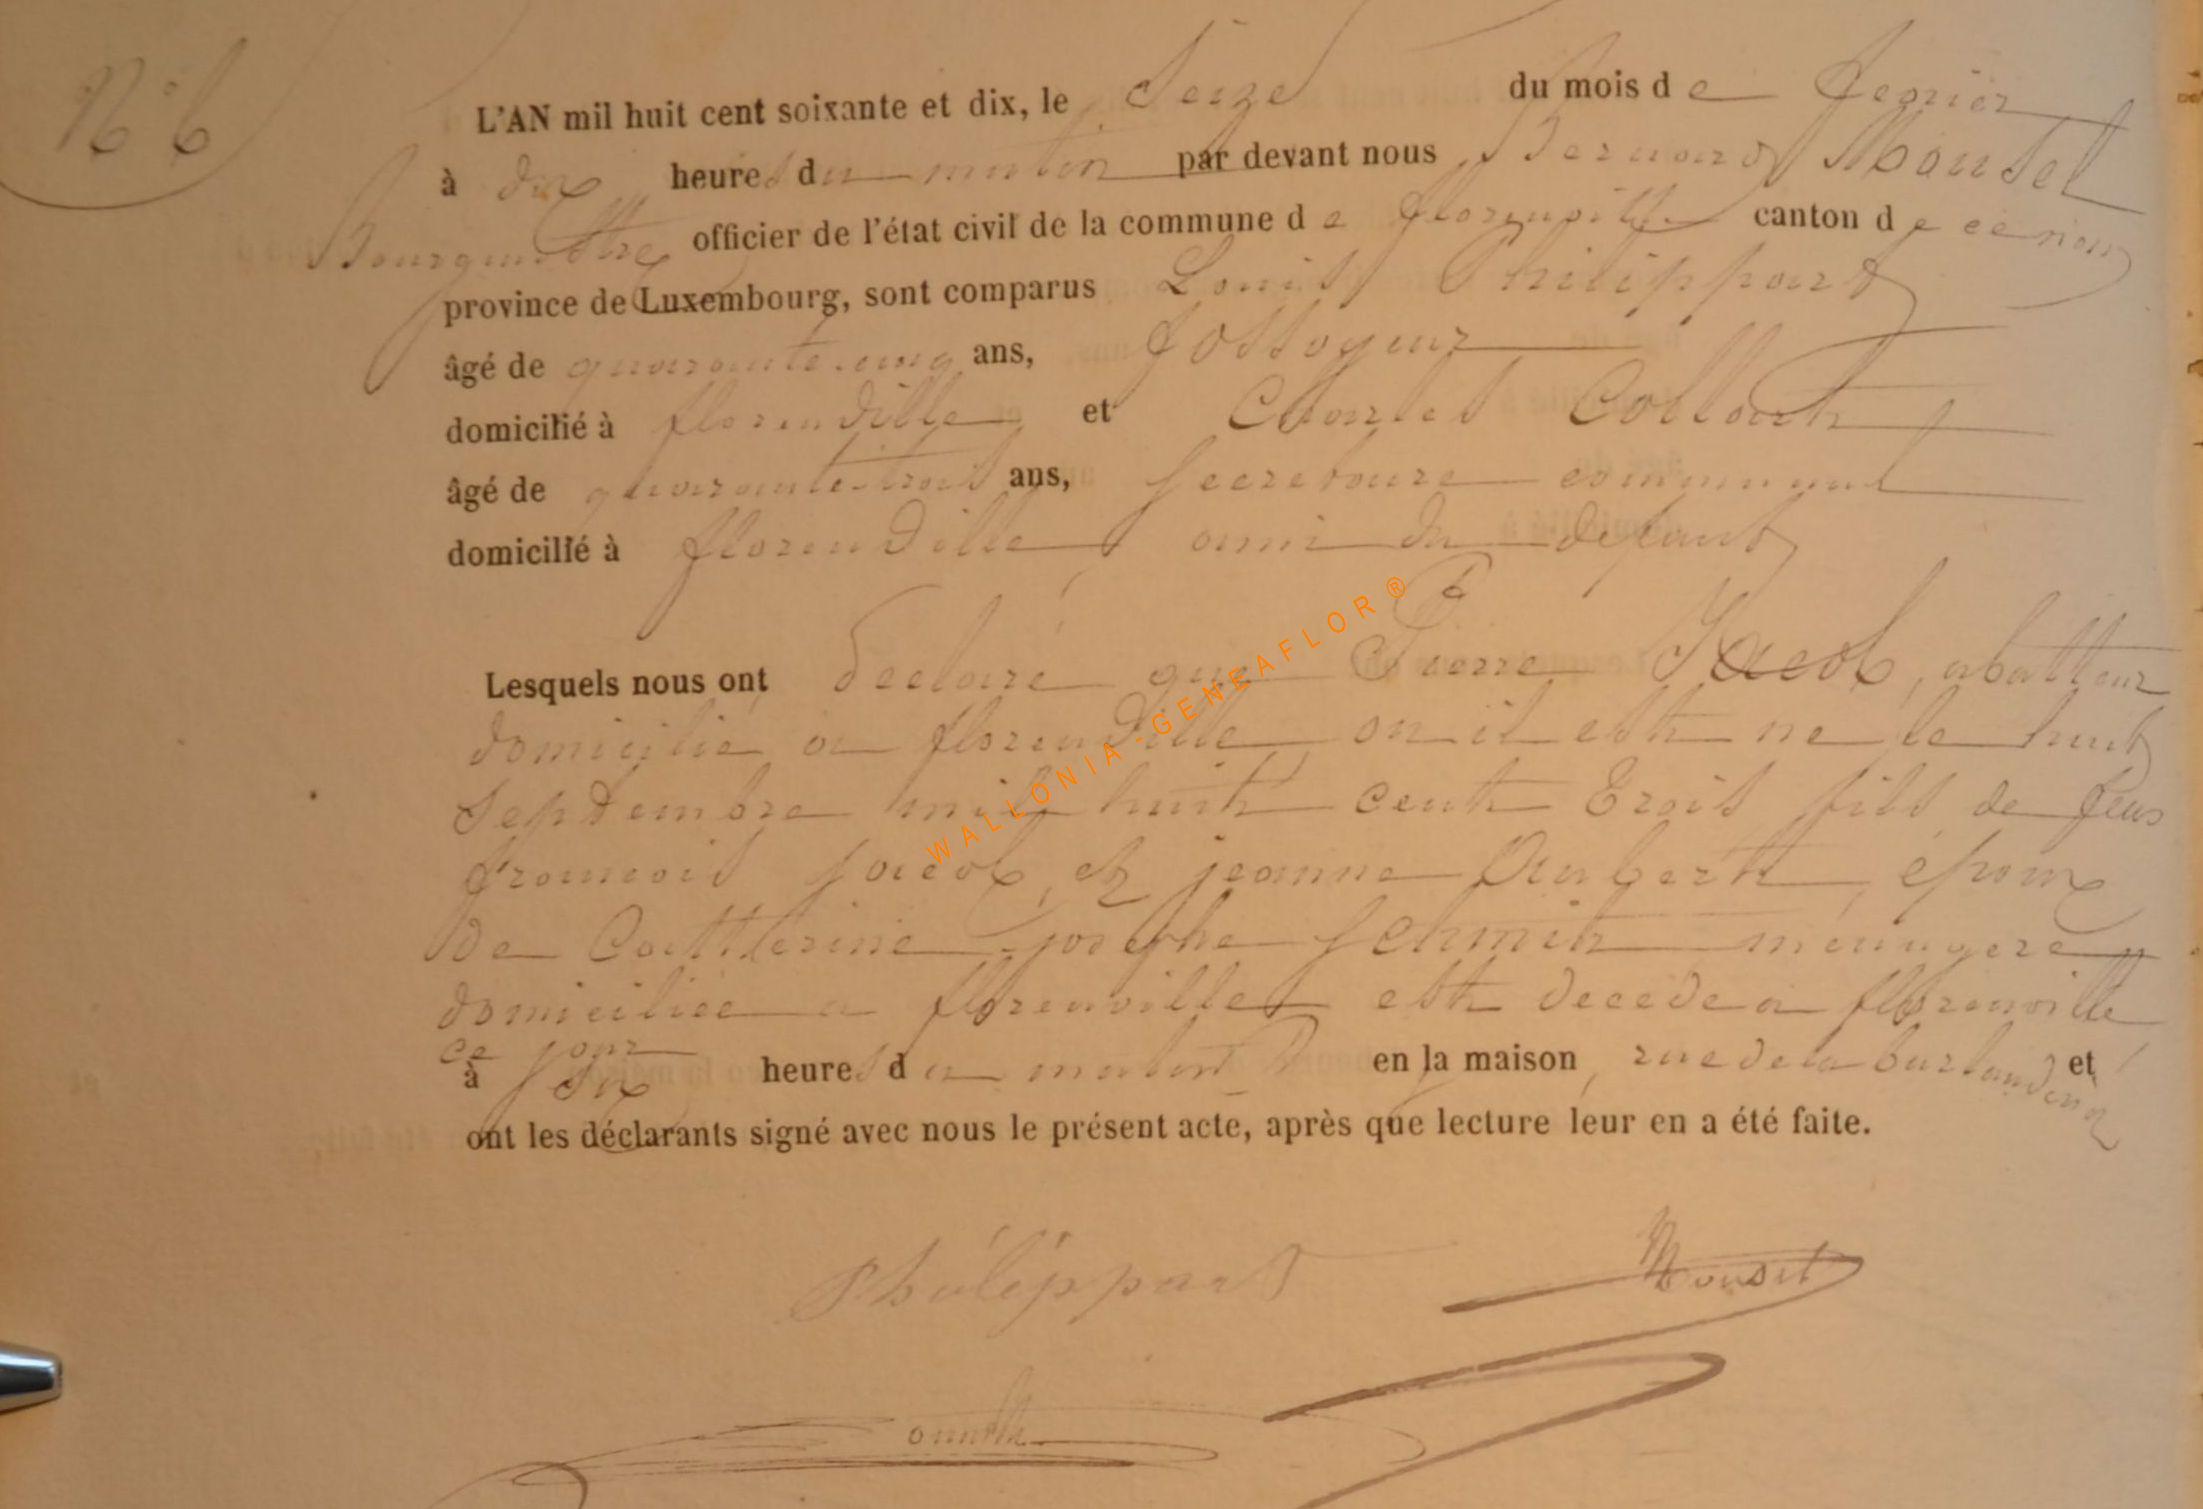 N° 6
L'AN mil huit cent soixante et dix, le Seize du mois de fevrier
à dix heures du matin par devant nous Bernard Mousel
Bourgmestre officier de l'état civil de la commune de florenville canton de ce nom
province de Luxembourg, sont comparus Louis Philippart
âgé de quarante-cinq ans, fossoyeur
domicilié à florenville et Charles Collart
âgé de quarante-trois ans, secretaire communal
domicilié à florenville, amis du defunt
Lesquels nous ont declaré que Pierre Jacob, abatteur
domicilié a florenville, ou il est ne le huit
Septembre mil huit cent trois fils de feus
francois Jacob, et jeanne Aubert, époux
de Catherine josephe Schmit menagere
domiciliée a florenville est decede a florenville
ce jour
à six heures du matin en la maison, rue de la et
ont les déclarants signé avec nous le présent acte, après que lecture leur en a été faite.
Philippart
Mousel
WALLONIA-GENEAFLOR®